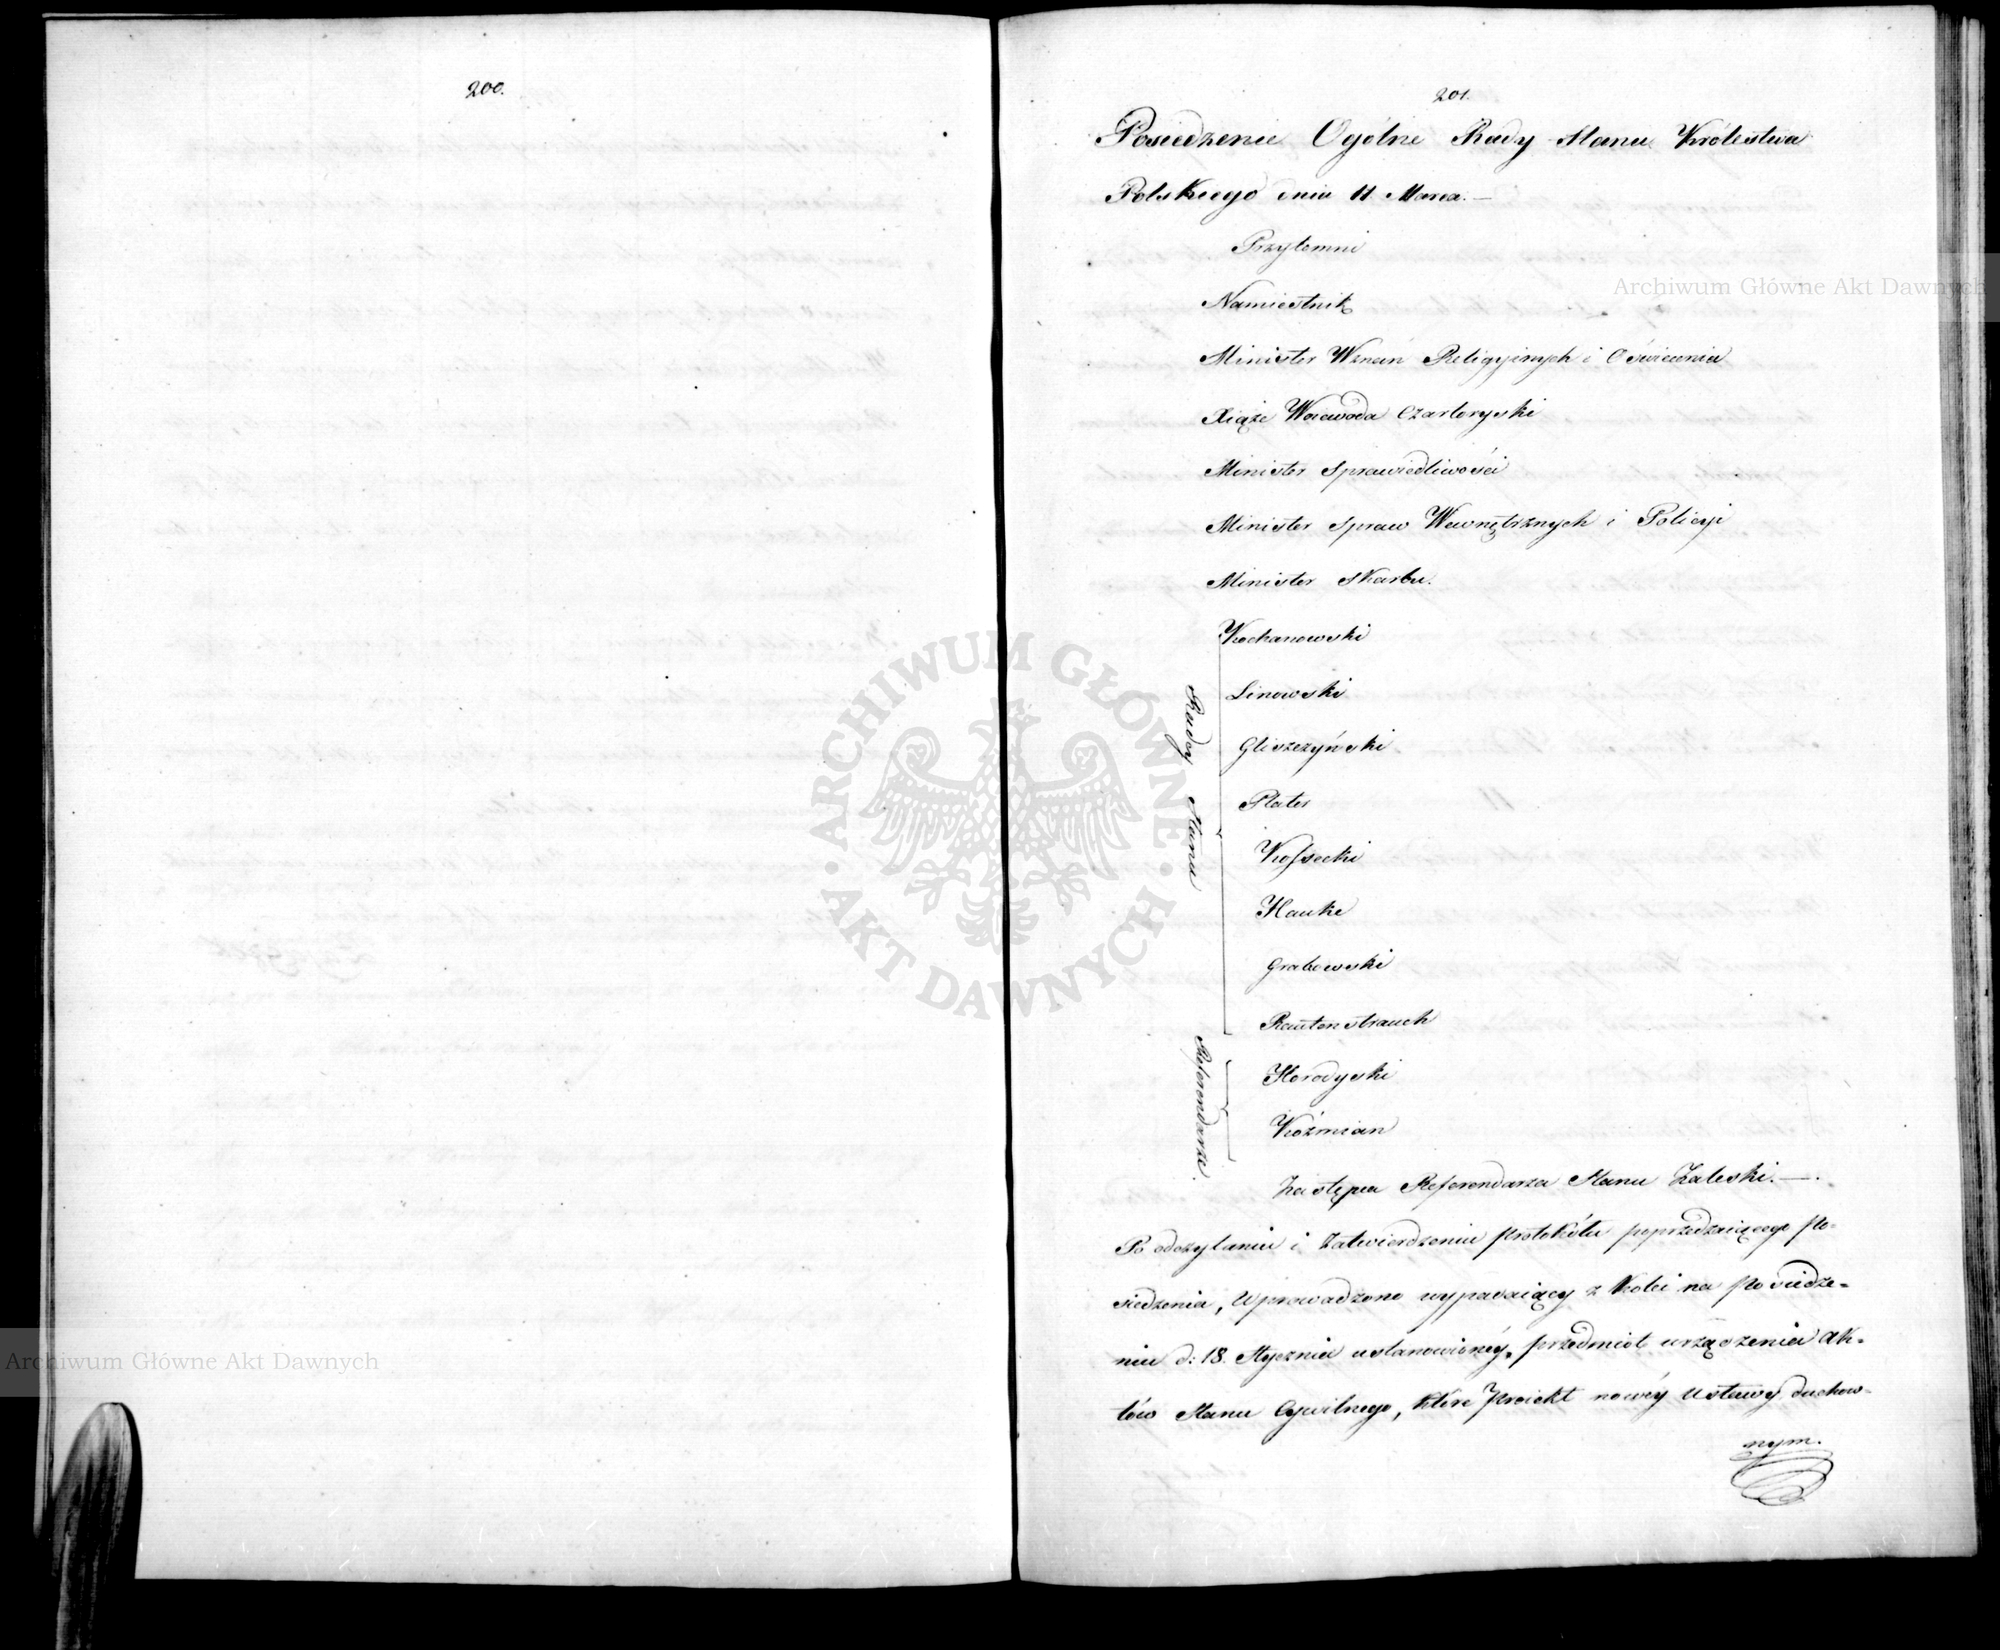 200.
201.
Posiedzenie Ogólne Rady Stanu Królestwa
Polskiego dnia 11 Marca. —
Przytomni
Namiestnik
Minister Wznań Religyinych i Oświecenia
Xiąże Woiewoda Czartoryski
Minister Sprawiedliwości
Minister Spraw Wewnętrznych i Policyi
Minister Skarbu.
Radcy Stanu
Kochanowski
Linowski
Gliszczyński
Plater
Kossecki
Hauke
Grabowski
Rautenstrauch
Referendarze
Horodyski
Koźmian
Zastępca Referendarza Stanu Zaleski. —
Po odczytaniu i zatwierdzeniu protokółu poprzedzaiącego po-
siedzenia, wprowadzono wypadaiący z kolei na posiedze-
niu d: 18. Stycznia ustanowionéy, przedmiot urządzenia Ak-
tów Stanu Cywilnego, które Proiekt nowéy Ustawy duchow-
nym.
ARCHIWUM GŁÓWNE AKT DAWNYCH
Archiwum Główne Akt Dawnych
Archiwum Główne Akt Dawnych